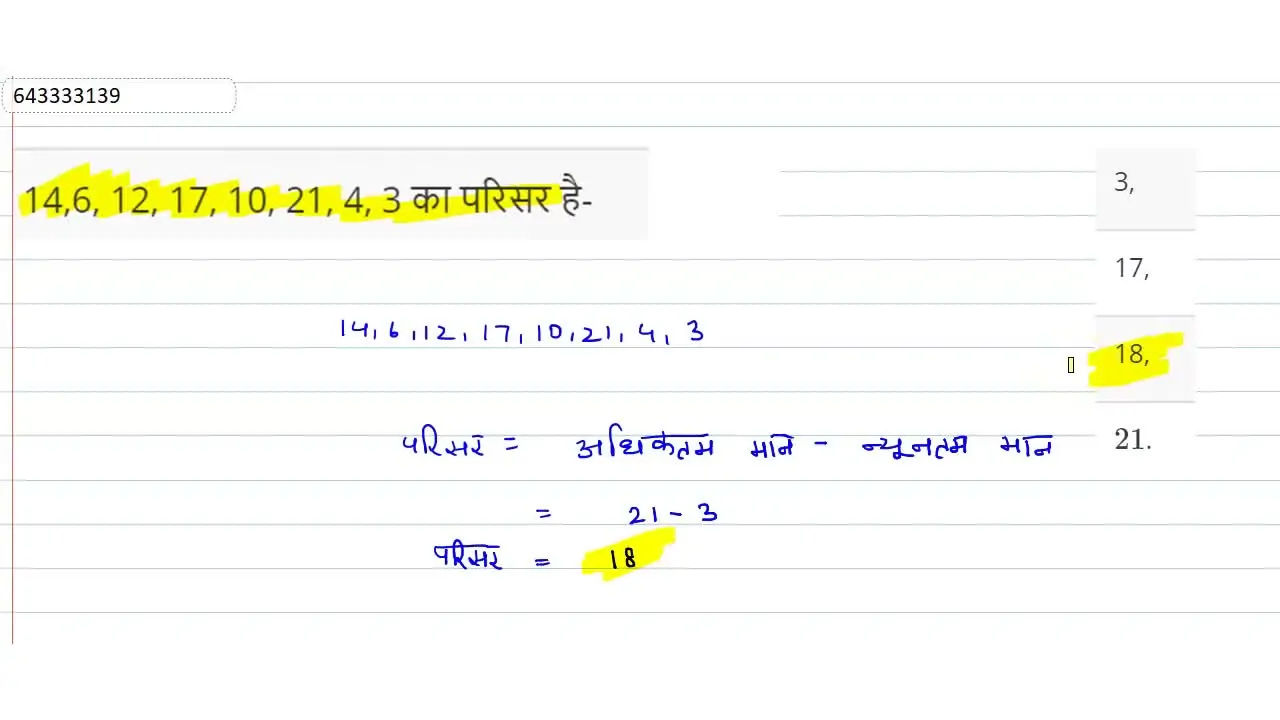 643333139
14,6, 12, 17, 10, 21, 4, 3 का परिसर है-
3,
17,
18,
21.
14, 6, 12, 17, 10, 21, 4, 3
परिसर = अधिकतम मान - न्यूनतम मान
= 21 - 3
परिसर = 18